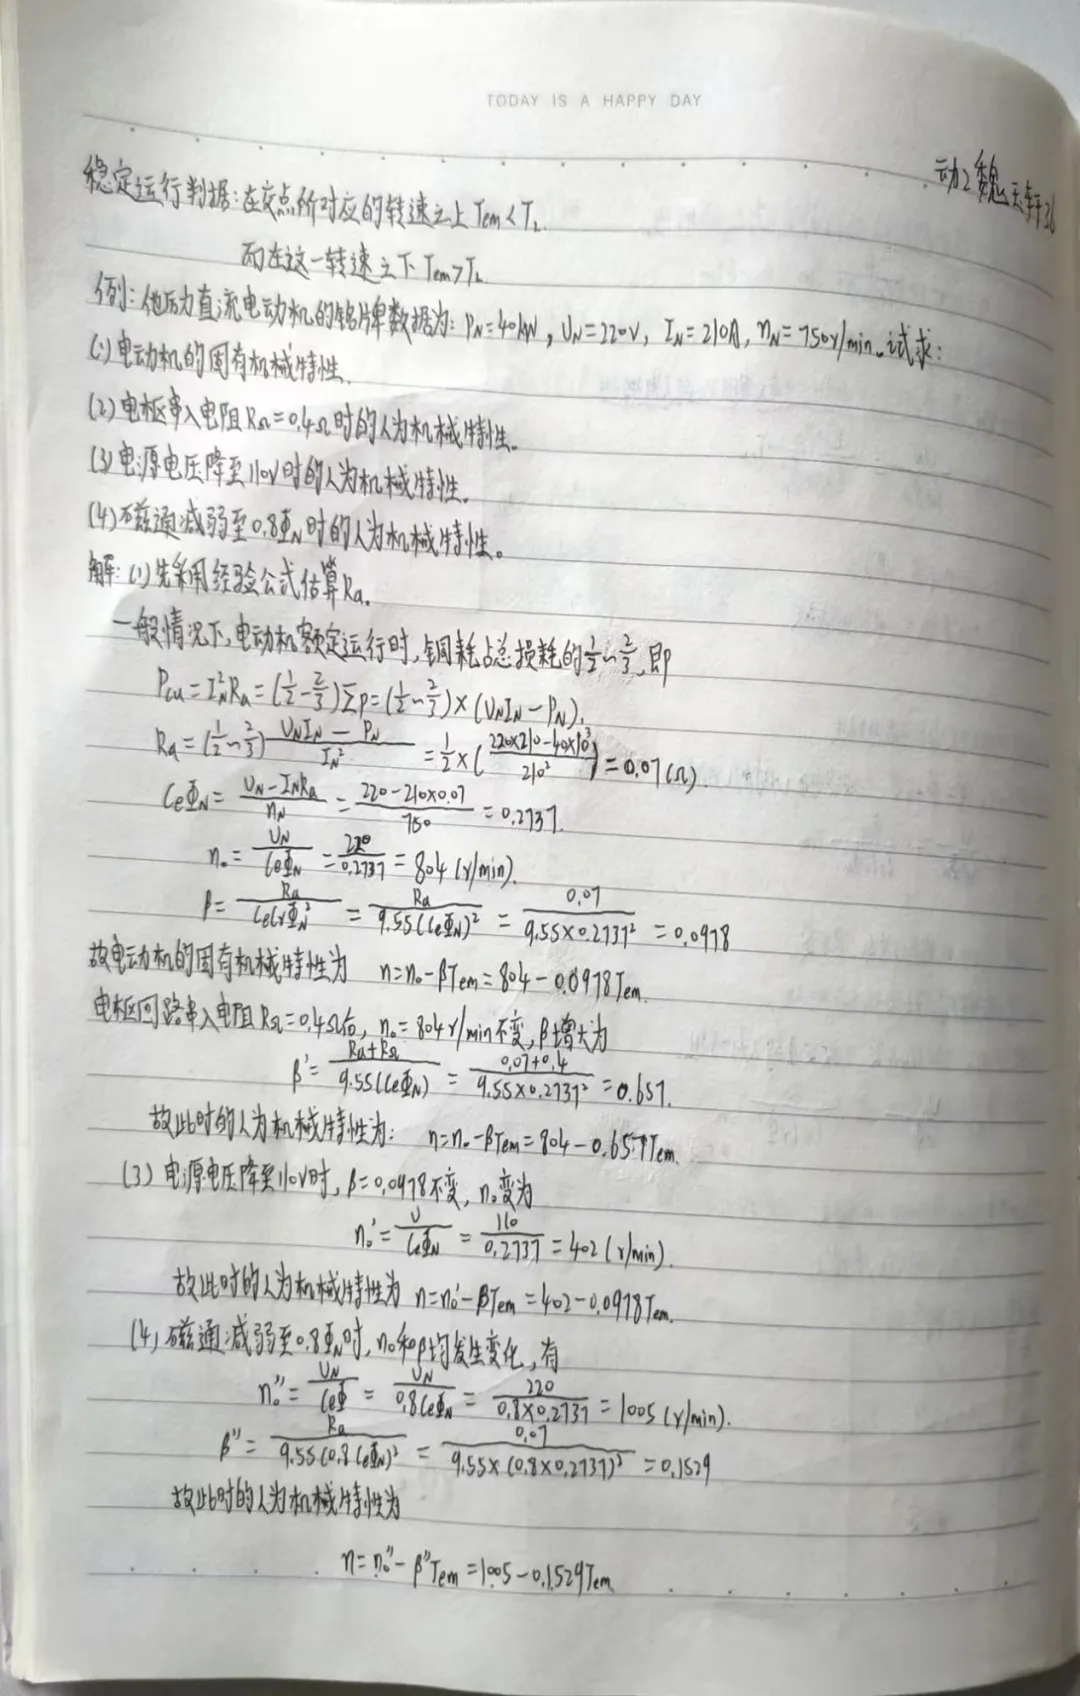 TODAY IS A HAPPY DAY
动2 魏天轩36
稳定运行判据:在交点所对应的转速之上 Tem<TL.
而在这一转速之下 Tem>TL
例:他励直流电动机的铭牌数据为: PN=40kW, UN=220V, IN=210A, nN=750r/min。试求:
(1)电动机的固有机械特性.
(2)电枢串入电阻RΩ=0.4Ω时的人为机械特性.
(3)电源电压降至110V时的人为机械特性.
(4)磁通减弱至0.8ΦN时的人为机械特性。
解:(1)先采用经验公式估算Ra.
一般情况下,电动机额定运行时,铜耗占总损耗的1/2~2/3,即
Pcu=IN²Ra=(1/2-2/3)Σp=(1/2~2/3)×(UNIN-PN).
Ra=(1/2~2/3) (UNIN-PN)/IN² =1/2×((220×210-40×10³)/210²)=0.07(Ω).
CeΦN=(UN-INRa)/nN=(220-210×0.07)/750=0.2737.
n0=UN/CeΦN=220/0.2737=804(r/min).
β=Ra/CeCTΦN²=Ra/9.55(CeΦN)²=0.07/9.55×0.2737²=0.0978
故电动机的固有机械特性为 n=n0-βTem=804-0.0978Tem.
电枢回路串入电阻RΩ=0.4Ω后, n0=804r/min不变,β增大为
β'=(Ra+RΩ)/9.55(CeΦN)=(0.07+0.4)/9.55×0.2737²=0.657.
故此时的人为机械特性为: n=n0-βTem=804-0.657Tem.
(3) 电源电压降至110V时, β=0.0978不变, n0变为
n0'=U/CeΦN=110/0.2737=402(r/min).
故此时的人为机械特性为 n=n0'-βTem=402-0.0978Tem.
(4) 磁通减弱至0.8ΦN时, n0和β均发生变化,有
n0''=UN/CeΦ=UN/0.8CeΦN=220/0.8×0.2737=1005(r/min).
β''=Ra/9.55(0.8CeΦN)²=0.07/9.55×(0.8×0.2737)²=0.1529
故此时的人为机械特性为
n=n0''-β''Tem=1005-0.1529Tem